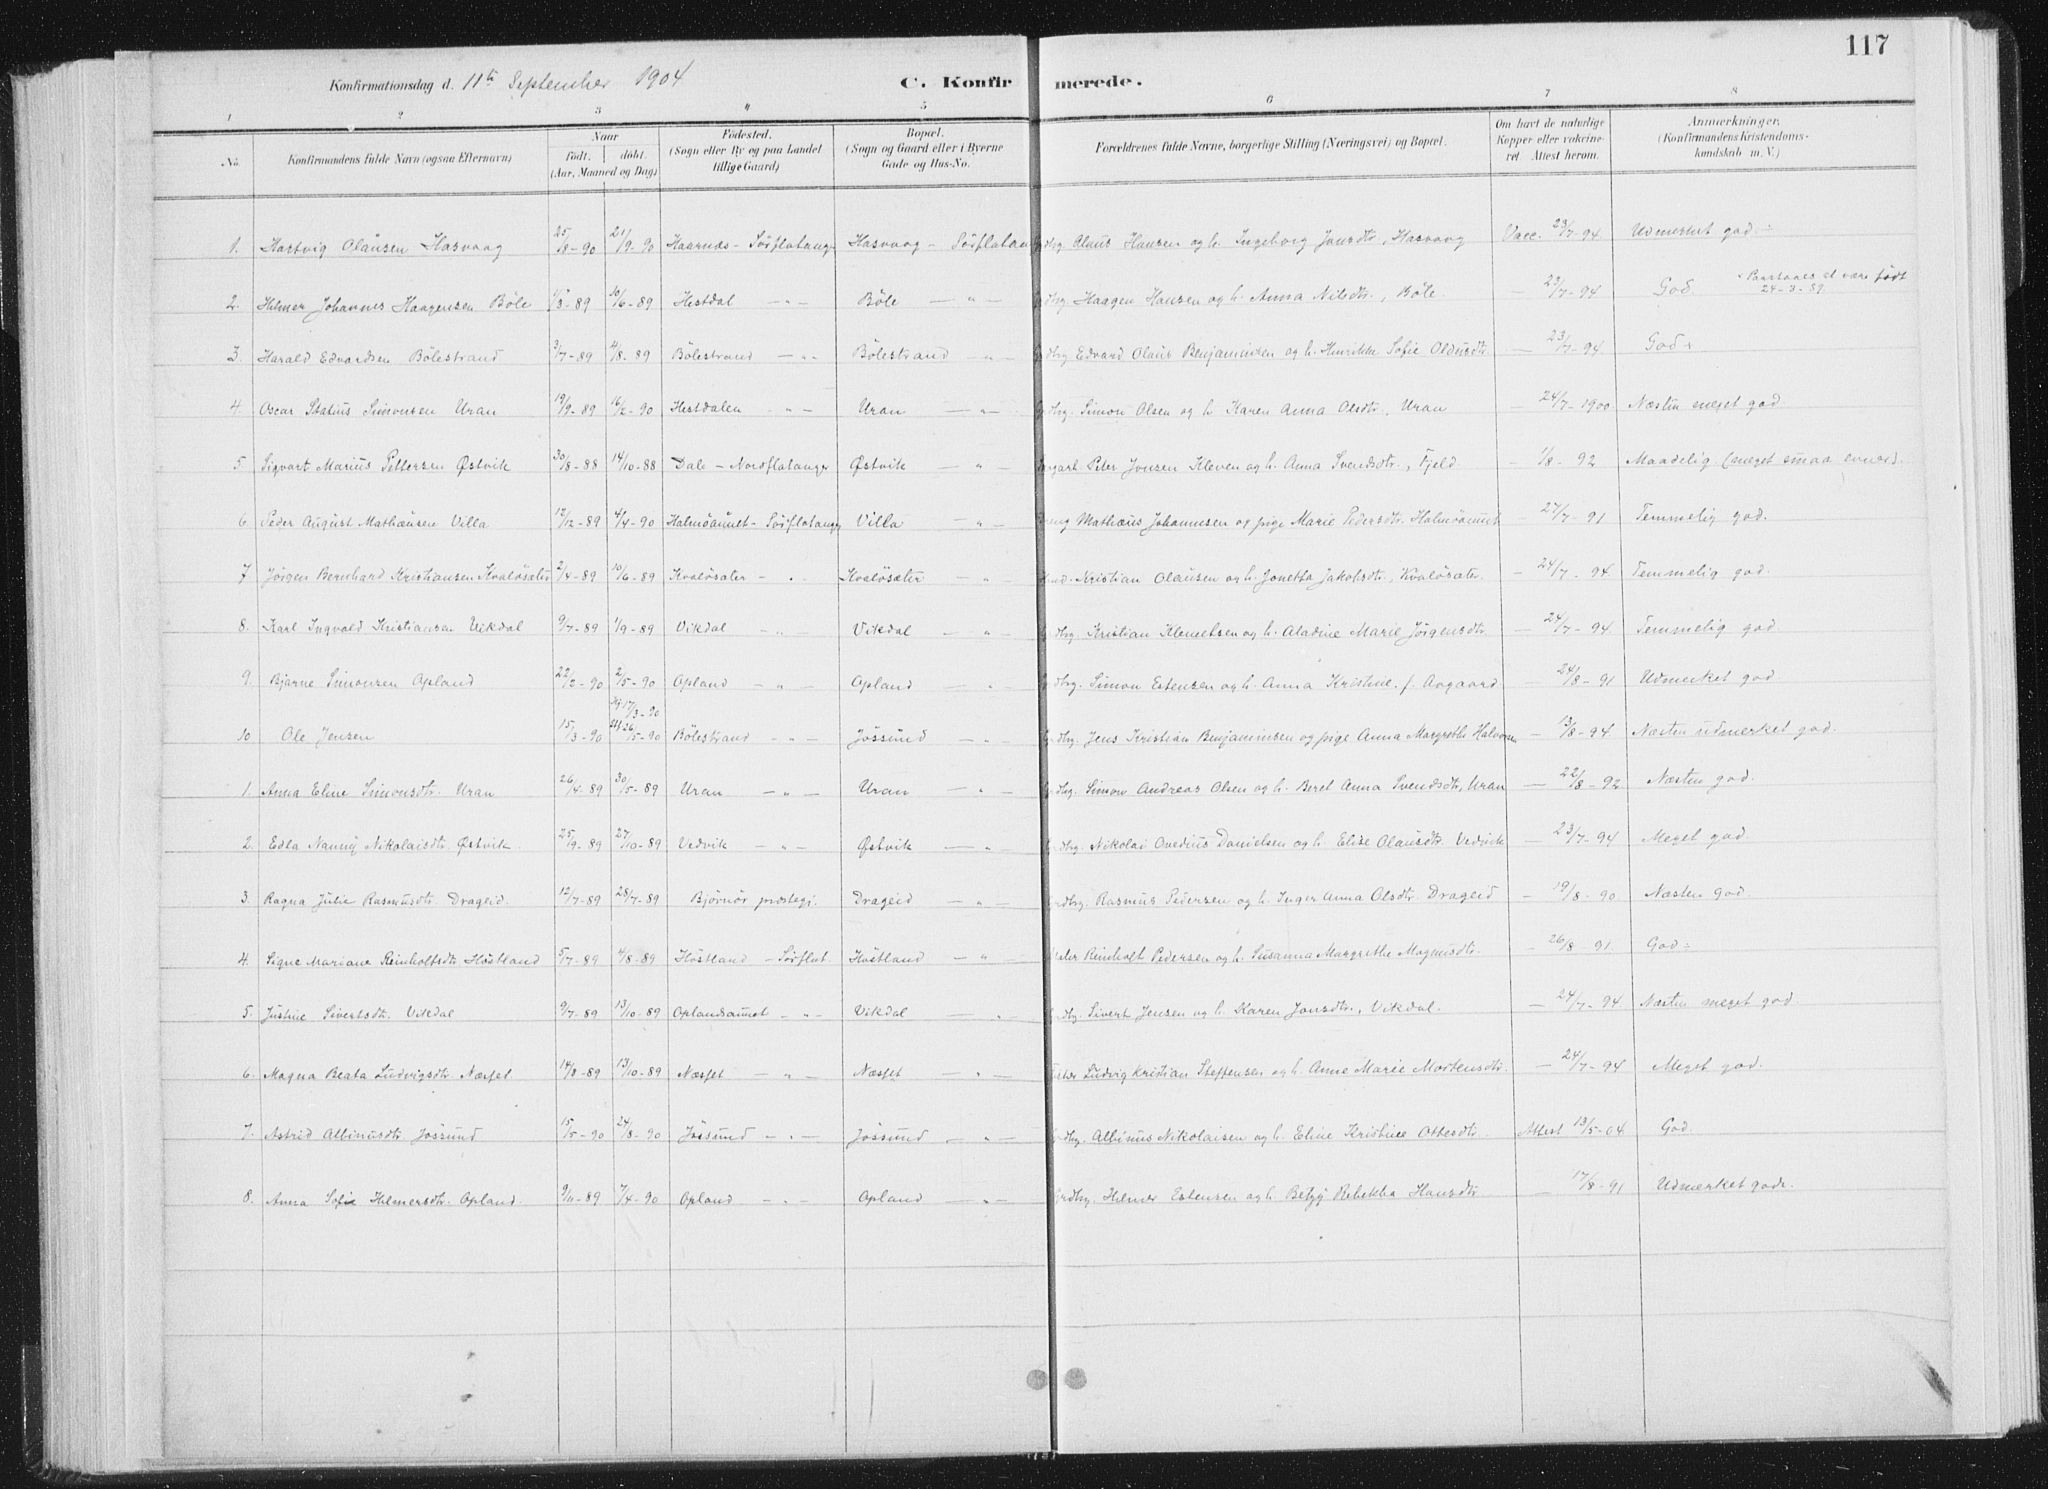 117
Konfirmationsdag d. 11te September 1904
C. Konfirmerede.
1 2 3 4 5 6 7 8
No. Konfirmandens fulde Navn (ogsaa Efternavn) Naar født. døbt. (Aar, Maaned og Dag) Fødested. (Sogn eller By og paa Landet tillige Gaard) Bopæl. (Sogn og Gaard eller i Byerne Gade og Hus-No. Forældrenes fulde Navne, borgerlige Stilling (Næringsvei) og Bopæl. Om havt de naturlige Kopper eller vakcineret. Attest herom. Anmærkninger, (Konfirmandens Kristendomskundskab m. V.)
1. Hartvig Olausen Hasvaag 25/8-90 21/9-90 Haarnæs - Sörflatanger Hasvaag - Sörflatan Olaus Hansen og h. Ingeborg Jonsdtr., Hasvaag Vacc. 23/7-94 Udmerket god
2. Helmer Johannes Haagensen Böle 10/6-89 Hestdal - " - Böle - " - Haagen Hansen og h. Anna Nilsdtr., Böle - 23/7-94 God. Paastaaes at være født 24-3-89.
3. Harald Edvardsen Bölestrand 3/7-89 4/8-89 Bölestrand - " Bölestrand " - Edvard Olaus Benjaminsen og h. Henrikke Sofie Oldusdtr. - 23/7-94 God
4. Oscar Statius Simonsen Uran 19/9-89 16/2-90 Hestdalen - " - Uran - " - Simon Olsen og h. Karen Anna Olsdtr., Uran - 24/7-1900 Næsten meget god
5. Sigvart Marius Pettersen Østvik 30/8-88 14/10-88 Dale - Nordflatanger Østvik - " Peter Jonsen Kleven og h. Anna Svendsdtr., Fjeld - 1/8-92 Maadelig (meget smaa evner).
6. Peder August Mathæusen Villa 12/12-89 4/4-90 Halmöaunet - Sörflatanger Villa - " - Mathæus Johannsen og pige Marie Pedersdtr. Halmöaunet 27/7-91 Temmelig god.
7 Jörgen Bernhard Kristiansen Kvalösæter 2/4-89 10/6-89 Kvalösæter - " Kvalösæter - " - Kristian Olausen og h. Jonetta Jakobsdtr., Kvalösæter. - 24/7-94 Temmelig god.
8. Karl Ingvald Kristiansen Vikdal 9/7-89 1/9-89 Vikdal - " Vikdal - " - Kristian Klemetsen og h. Aladine Marie Jörgensdtr. - 24/7-94 Temmelig god
9. Bjarne Simonsen Opland 22/2-90 2/5-90 Opland - " - Opland - " - Simon Estensen og h. Anna Kristine f. Aagaard - 24/8-91 Udmerket god
10 Ole Jensen 15/3-90 17/3-90 26/5-90 Bölestrand - " - Jössund - " - Jens Kristian Benjaminsen og pige Anna Margrethe Halvorsen - 13/8-94 Næsten udmerket god.
1. Anna Eline Simonsdtr. Uran 26/4-89 30/5-89 Uran - " - Uran - " - Simon Andreas Olsen og h. Beret Anna Svendsdtr, Uran - 22/8-92 Næsten god.
2. Edla Nanny Nikolaisdtr. Østvik. 25/9-89 27/10-89 Vedvik - " - Østvik - " - Nikolai Ovedius Danielsen og h. Elise Olausdtr. Vedvik - 23/7-94 Meget god
3. Ragna Julie Rasmusdtr. Drageid. 12/7-89 28/7-89 Björnör præstegj. Drageid - " - Rasmus Pedersen og h. Inger Anna Olsdtr. Drageid - 19/8-90 Næsten god.
4. Signe Mariane Reinholtsdtr Höstland 5/7-89 4/8-89 Höstland - Sörflat. Höstland - " - Reinholt Pedersen og h. Susanna Margrethe Magnusdtr. - 26/8-91 God
5. Justine Sivertsdtr. Vikdal 9/7-89 13/10-89 Oplandsaunet - " - Vikdal - " - Sivert Jensen og h. Karen Jonsdtr., Vikdal. - 24/7-94 Næsten meget god.
6. Magna Beata Ludvigsdtr. Næsset 14/8-89 13/10-89 Næsset - " - Næsset - " - Ludvig Kristian Steffensen og h. Anne Marie Mortensdtr. - 24/7-94 Meget god.
7. Astrid Albinusdtr. Jössund 15/5-90 24/8-90 Jössund - " - Jössund - " - Albinus Nikolaisen og h. Eline Kristine Ottesdtr. Attest 13/5-04 God.
8. Anna Sofie Helmersdtr. Opland. 9/11-89 7/4-90 Opland - " - Opland - " - Helmer Estensen og h. Betzy Rebekka Hansdtr - 17/8-91 Udmærket god.